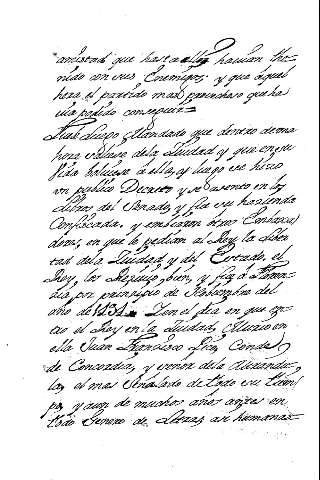 amistad que hasta alli hauian the-
nido con sus Enemigos; y que aquel
hera el partido mas prouechoso que ha-
uia podido conseguir=
Fue luego Mandado que dentro de una
hora saliese de la Ciudad y que en su
vida bolviese a ella, y luego se hizo
un publico Decreto y se asento en los
Libros del Senado, y fue su hacienda
Confiscada, y embiaron otros Embaxa-
dores, en que le pedian al Rey la Liber-
tad de la Ciudad, y del Estado, el
Rey, los Reciuio bien, y
dia por principio de Nobiembre del
año de 1494. En el dia en que en-
tro el Rey en la Ciudad, Murio en
ella Juan Francisco Pico, Conde
de Concordia, y señor de la Mirandu-
la, el mas Señalado de todo su tiem-
po, y aun de muchos años antes en
todo Genero de Letras, asi humanas